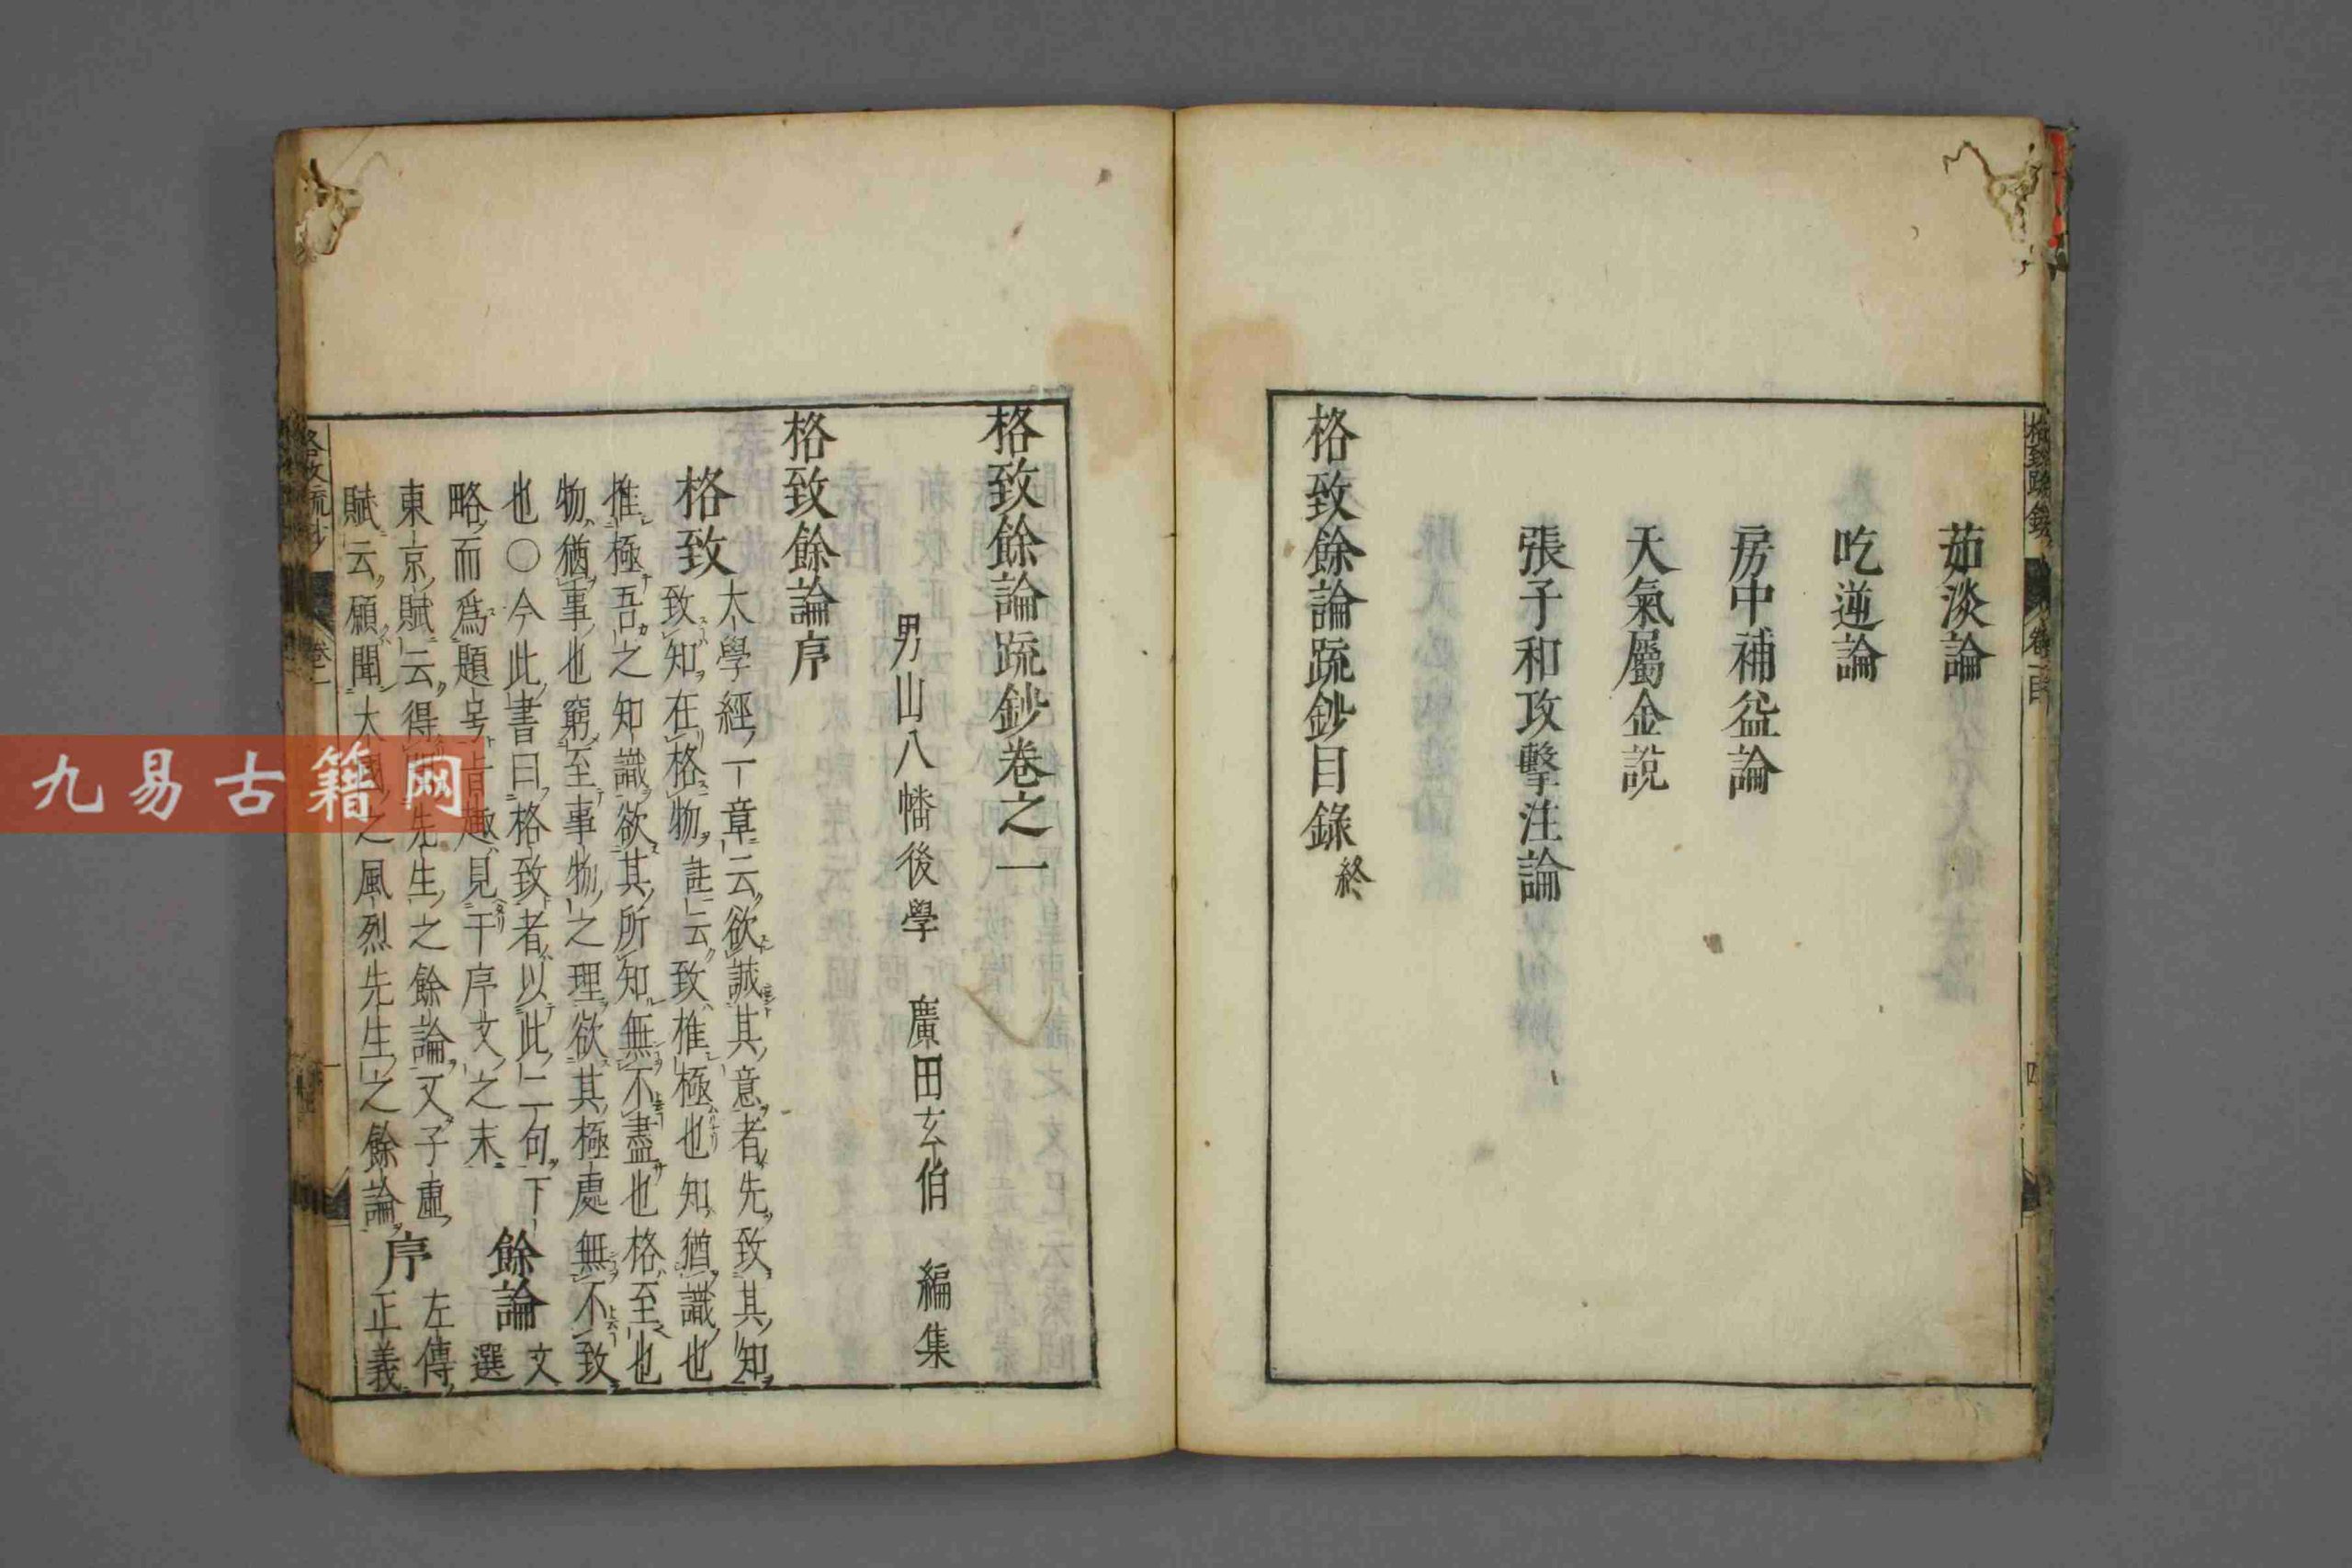 茹淡論
吃逆論
房中補益論
天氣屬金說
張子和攻擊注論
格致餘論疏鈔目錄終
格致餘論疏鈔卷之一
男山八幡後學 廣田玄伯 編集
格致餘論序
格致
大學經一章云欲誠其意者先致其知
致知在格物註云致推極也知猶識也
推極吾之知識欲其所知無不盡也格至也
物猶事也窮至事物之理欲其極處無不致
也○今此書曰格致者以此二句下 餘論 文
略而爲題号旨趣見于序文之末 選
東京賦云得聞先生之餘論又子虛 序 左傳
賦云願聞大國之風烈先生之餘論 正義
九易古籍网